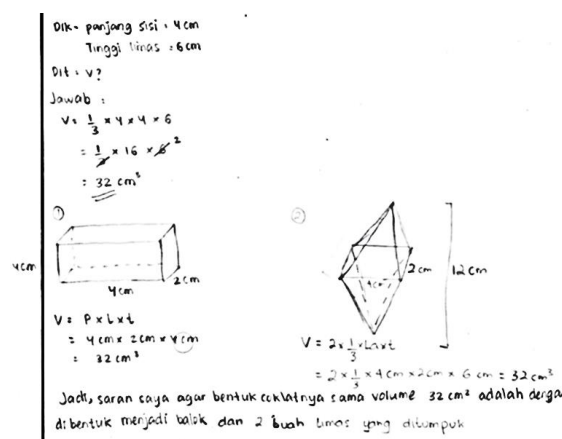 Dik = panjang sisi : 4 cm
Tinggi limas : 6 cm
Dit : V?
Jawab :
V = 1/3 × 4 × 4 × 6
= 1/3 × 16 × 6 2
= 32 cm³
①
②
4cm
4cm
2cm
2cm
4cm
12cm
V = P × L × t
= 4cm × 2cm × 4cm
= 32 cm³
V = 2 × 1/3 × La × t
= 2 × 1/3 × 4cm × 2cm × 6 cm = 32 cm³
Jadi, saran saya agar bentuk coklatnya sama volume 32 cm² adalah denga
dibentuk menjadi balok dan 2 buah limas yang ditumpuk